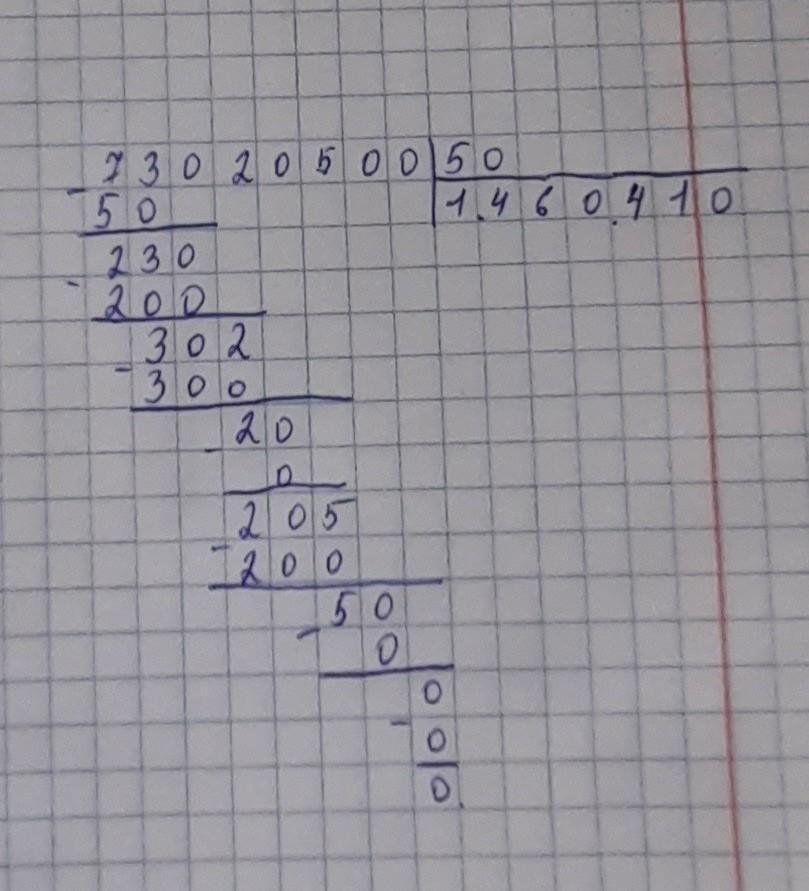 73020500 50
- 50 1.460.410
230
- 200
302
- 300
- 20
0
205
- 200
- 50
0
0
- 0
0